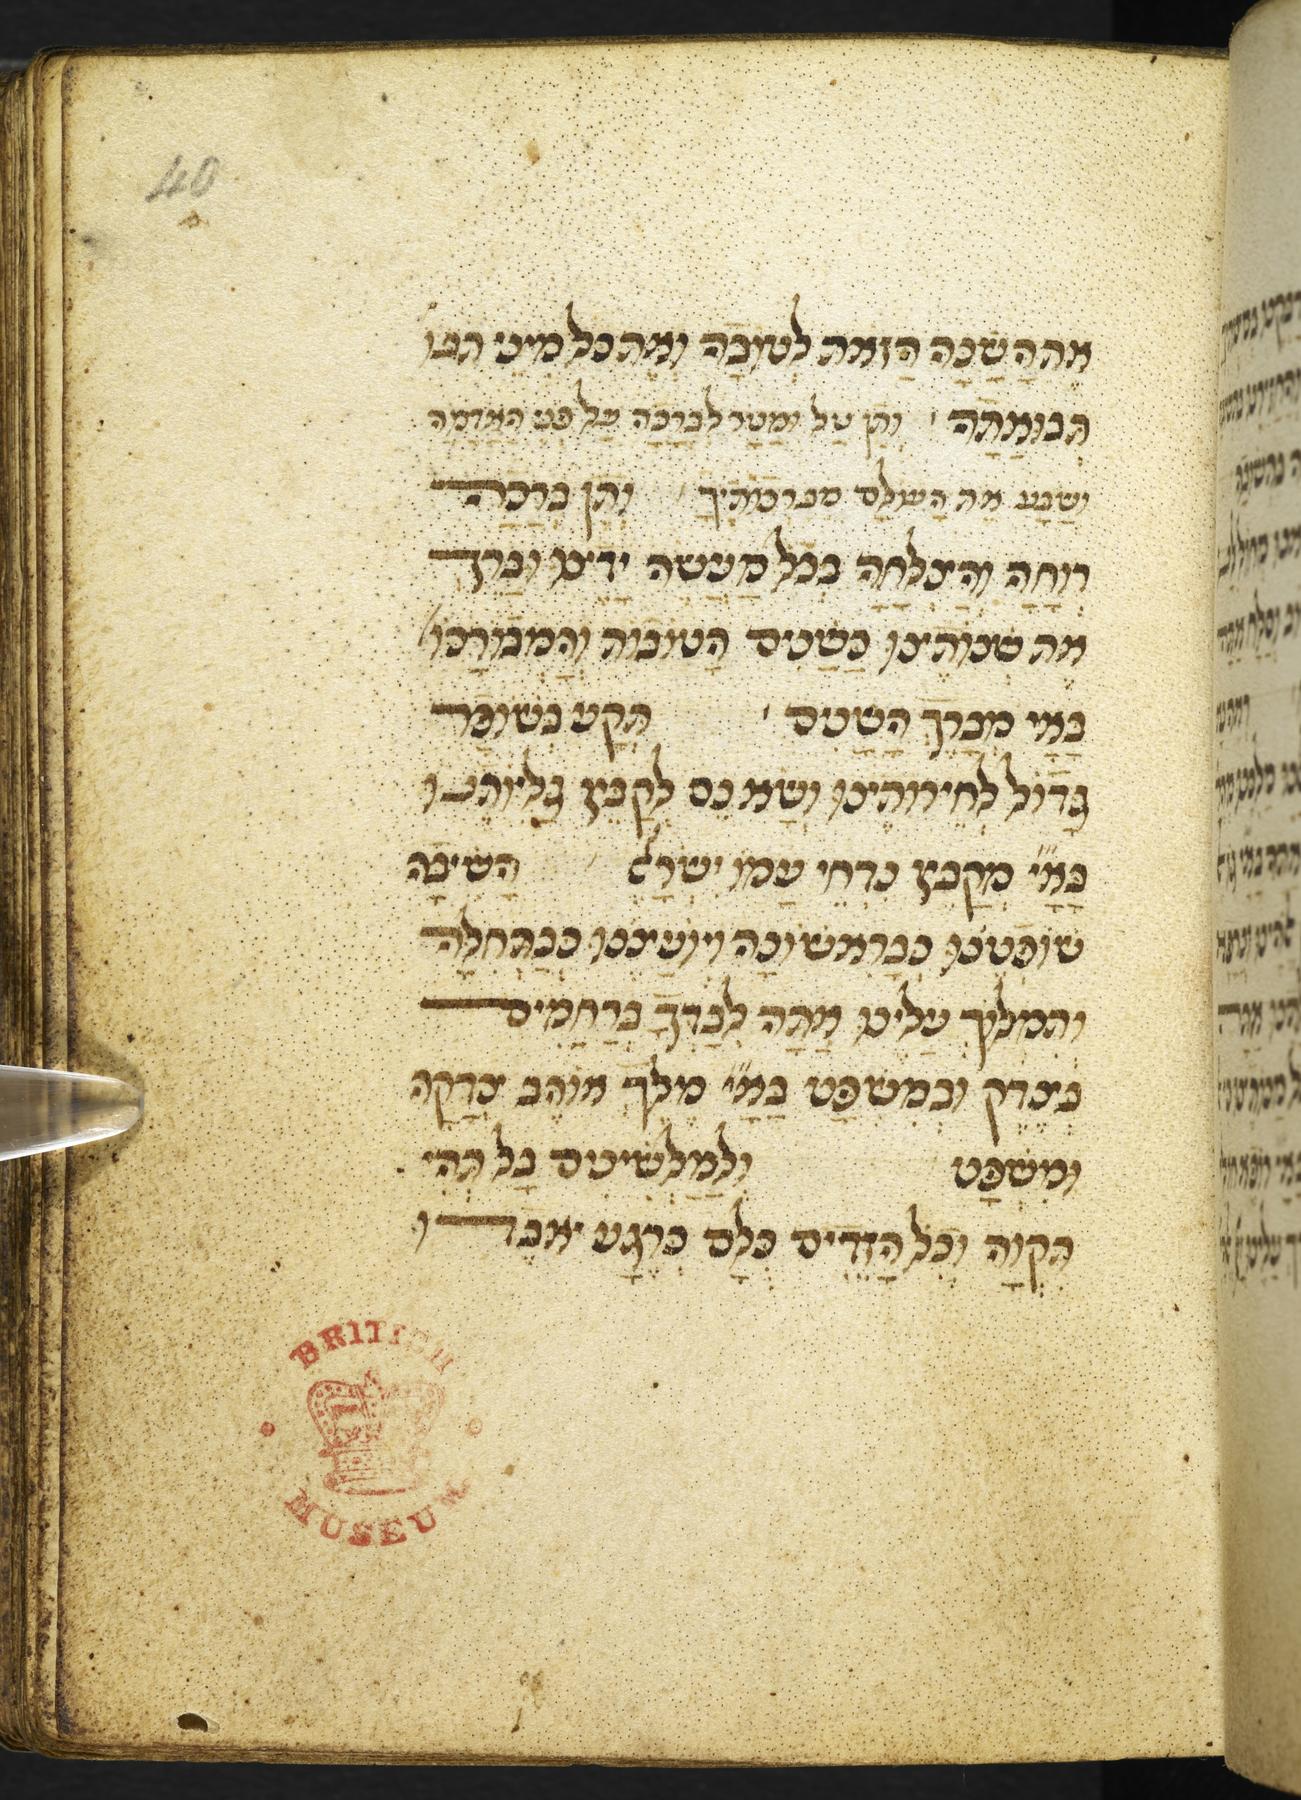 40
את השנה הזאת לטובה ואת כל מיני תבו
תבואתה ותן טל ומטר לברכה על פני האדמה
ושבע את העולם מברכותיך ותן ברכה
רוחה והצלחה בכל מעשה ידינו וברך
את שנותינו כשנים הטובות והמבורכו
בא״י מברך השנים תקע בשופר
גדול לחירותינו ושא נס לקבץ גליותינו
בא״י מקבץ נדחי עמו ישרל השיבה
שופטנו כבראשונה ויועצנו כבתחלה
והמלוך עלינו אתה לבדך ברחמים
בצדק ובמשפט בא״י מלך אוהב צדקה
ומשפט ולמלשינים בל תהי
תקוה וכל הזדים כלם כרגע יאבדו
BRITISH MUSEUM